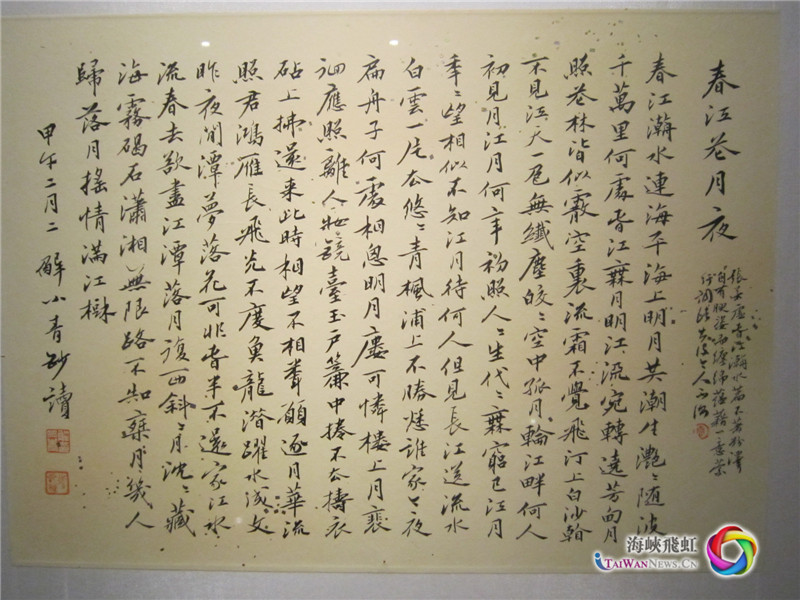 春江花月夜
張若虛春江潮水篇不著粉澤
自有腴姿而纏綿蘊藉一意縈
紆調法出沒令人不測
春江潮水連海平海上明月共潮生灩〻隨波
千萬里何處春江無月明江流宛轉遶芳甸月
照花林皆似霰空裏流霜不覺飛汀上白沙看
不見江天一色無纖塵皎〻空中孤月輪江畔何人
初見月江月何年初照人〻生代〻無窮已江月
年〻望相似不知江月待何人但見長江送流水
白雲一片去悠〻青楓浦上不勝愁誰家今夜
扁舟子何處相思明月廔可憐樓上月裵
洄應照離人妝鏡臺玉戶簾中捲不去擣衣
砧上拂還來此時相望不相聞願逐月華流
照君鴻雁長飛光不度魚龍潛躍水成文
昨夜閒潭夢落花可憐春半不還家江水
流春去欲盡江潭落月復西斜〻月沈〻藏
海霧碣石瀟湘無限路不知乘月幾人
歸落月搖情滿江樹
甲午二月二 解小青抄讀
海峽飛虹
iTAIWANNEWS.CN